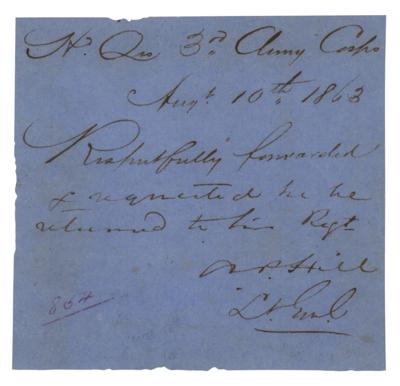 Hd. Qrs 3rd Army Corps
Augt. 10th 1863
Respectfully forwarded
& requested he be
returned to his Regt
A.P. Hill
Lt. Genl
864